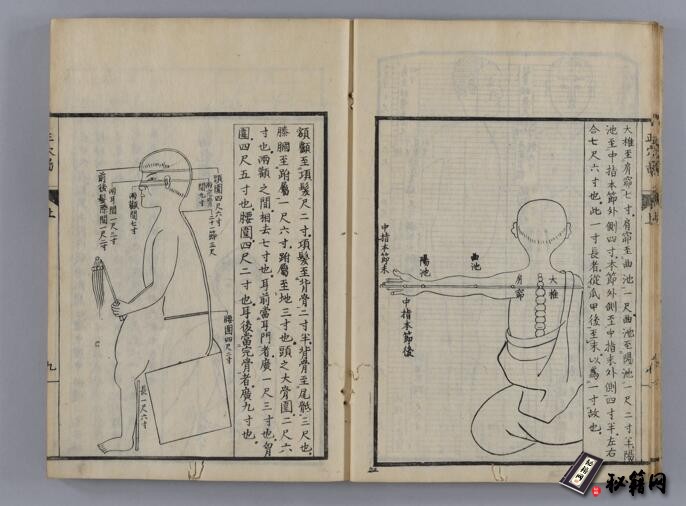 大椎至肩髎七寸。肩髎至曲池一尺。曲池至陽池一尺二寸半。陽
池至中指本節外側四寸。本節外側至中指末外側四寸半。左右
合七尺六寸也。此一寸長者。從瓜甲後至末。以為一寸故也。
大椎
肩髎
曲池
陽池
中指本節末
中指本節後
額顱至項髮尺二寸。項髮至背骨二寸半。背骨至尾骶三尺也。
膝膕至跗屬一尺六寸。跗屬至地三寸也。頭之大骨圍二尺六
寸也。兩顴之間。相去七寸也。耳前當耳門者。廣一尺三寸也。胷
圍四尺五寸也。腰圍四尺二寸也。耳後當完骨者。廣九寸也。
間九寸
二十一節三尺
兩顴間七寸
兩耳間一尺三寸
前後髮際間一尺二寸
腰圍四尺二寸
長一尺六寸
上
九
秘籍网
秘籍网